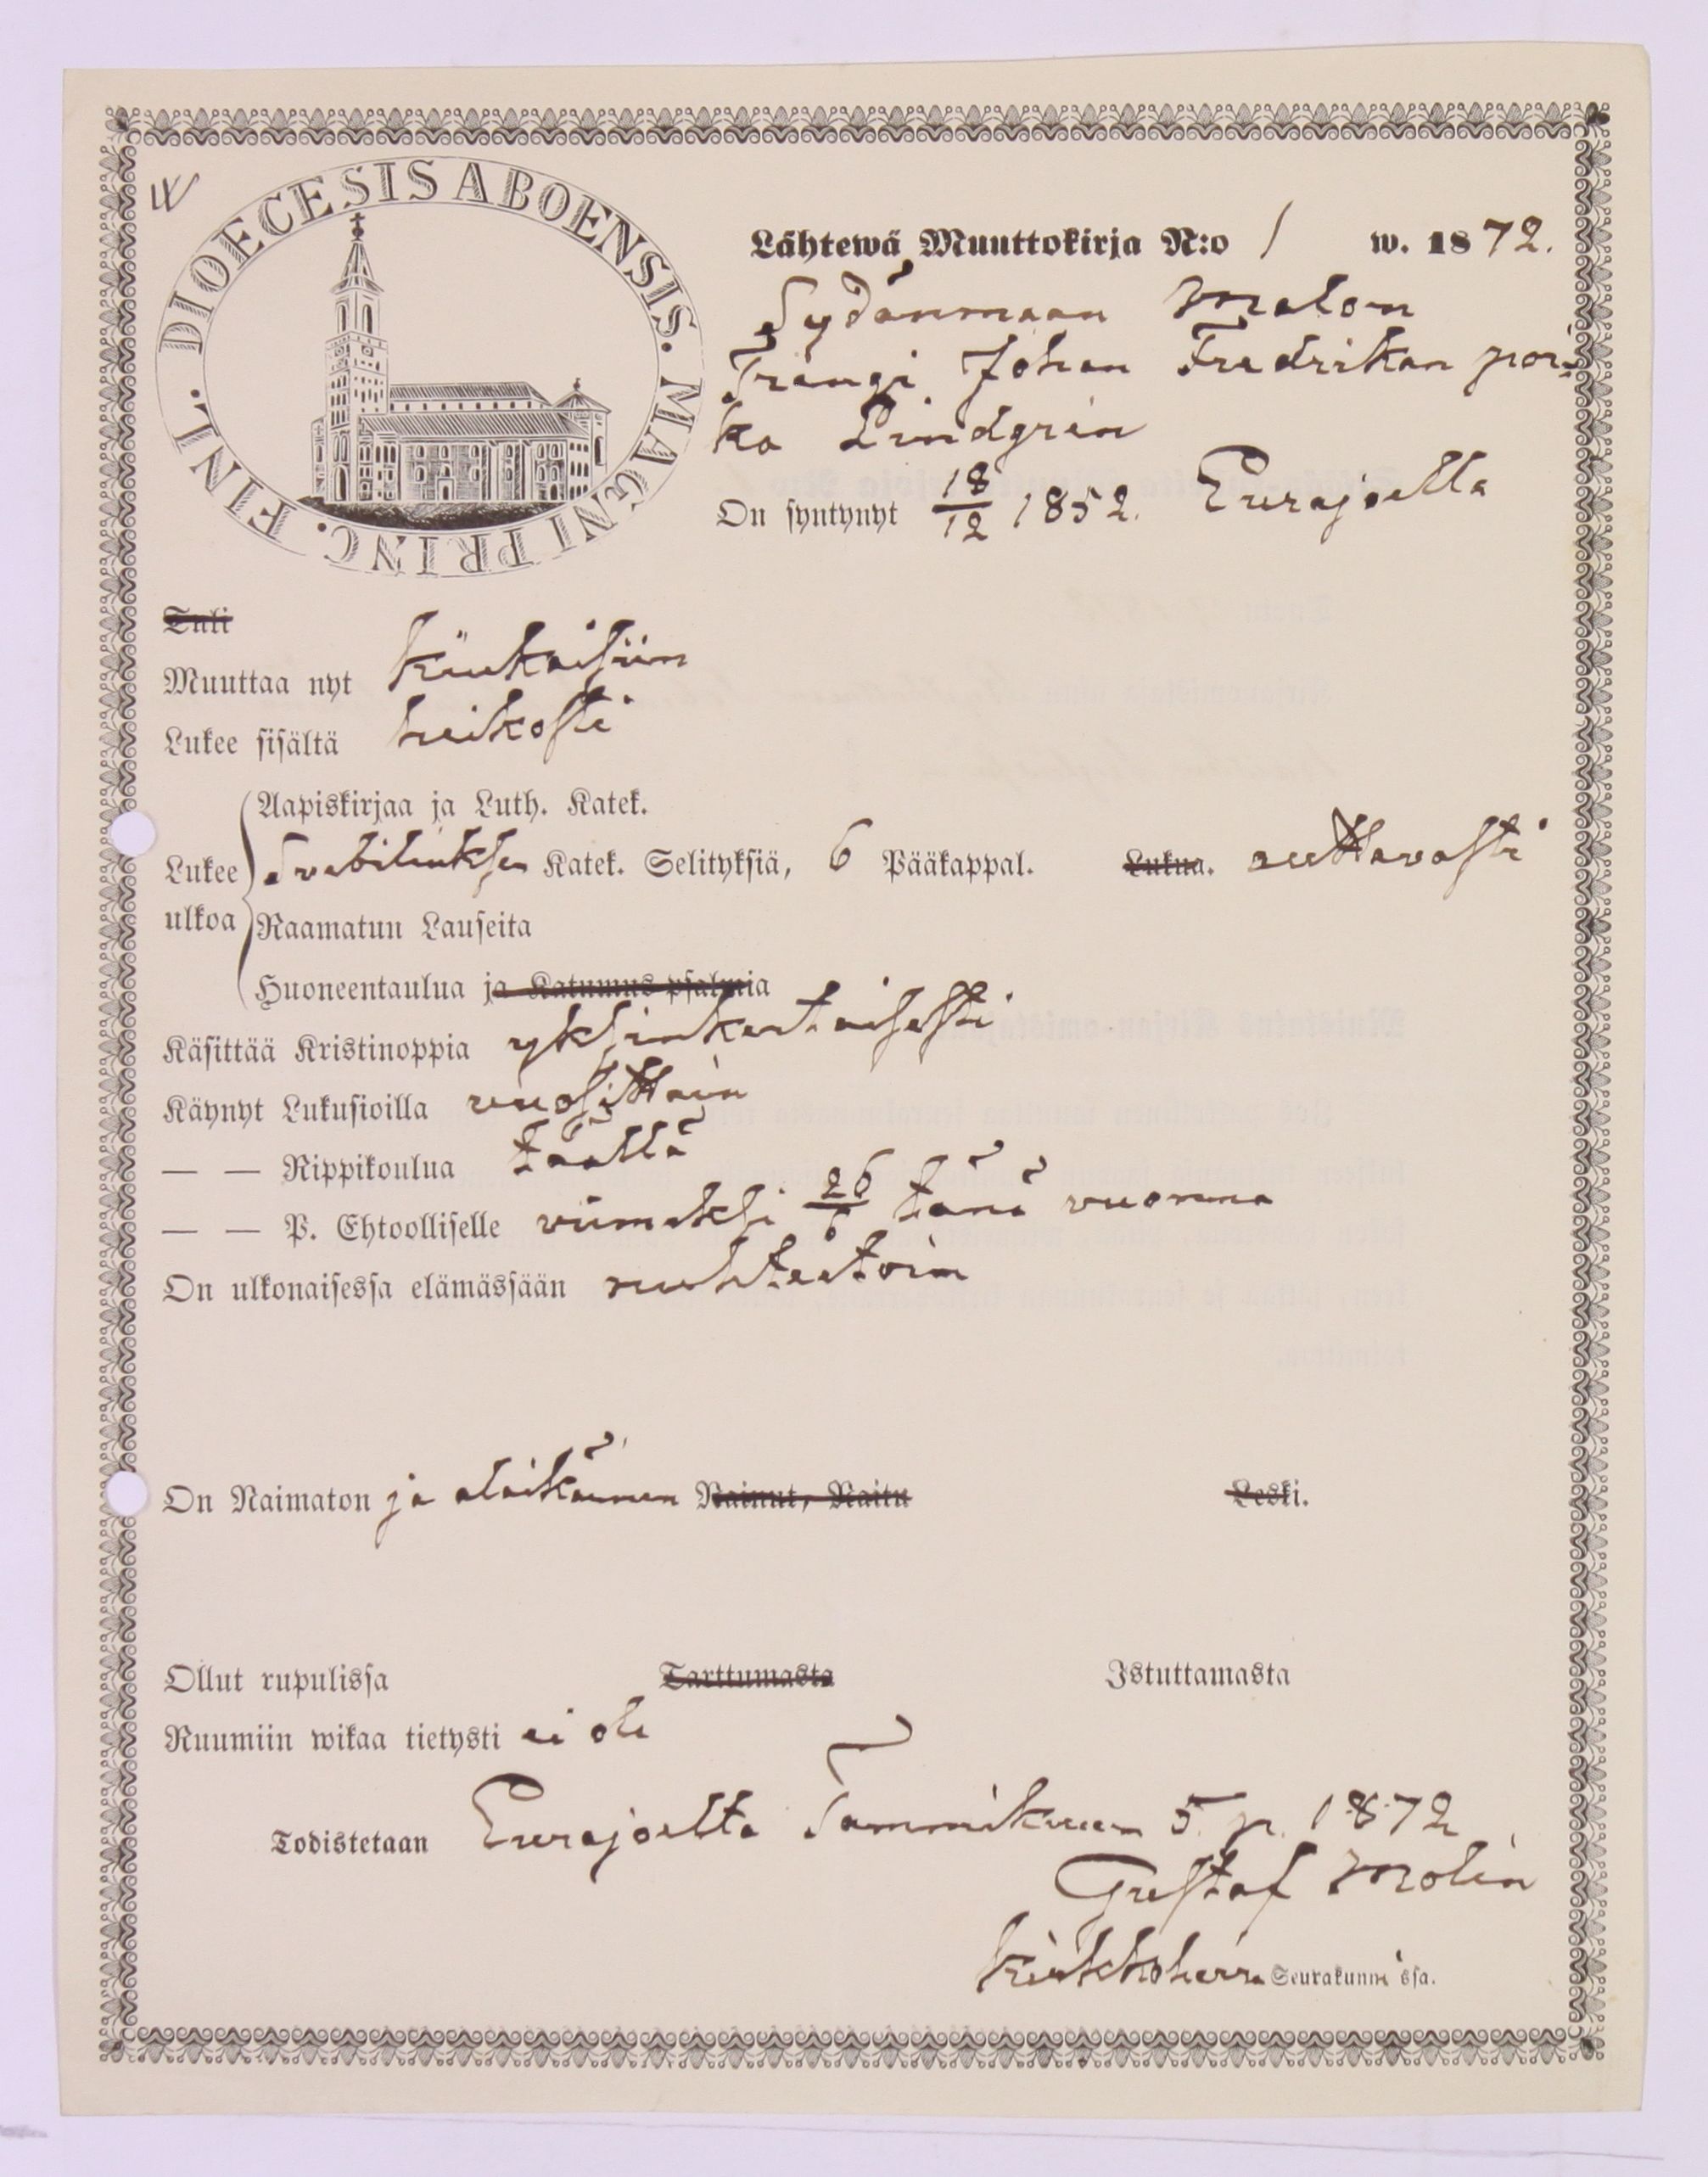 DIOECESIS ABOENSIS. MAGNI PRINC. FINL.
Lähtewä Muuttokirja N:o 1 w. 1872.
Sydänmaan malon
Trengi Johan Fredrikan poi-
ka Lindgrén
On syntynyt 18/12 1852. Eurajoella
Tuli
Muuttaa nyt Kiukaisiin
Lukee sisältä heikosti
Aapiskirjaa ja Luth. Katek.
Lukee Svebiliuksen Katek. Selityksiä, 6 Pääkappal. Lukua. auttavasti
ulkoa Raamatun Lauseita
Huoneentaulua ja Katumus-psalmia
Käsittää Kristinoppia yksinkertaisesti
Käynyt Lukusioilla vuosittain
— — Rippikoulua täällä
— — P. Ehtoolliselle viimeksi 26/6 tänä vuonna
On ulkonaisessa elämässään nuhteetoin
On Naimaton ja alaikäinen Nainut, Naitu Leski.
Ollut rupulissa Tarttumasta Istuttamasta
Ruumiin wikaa tietysti ei ole
Todistetaan Eurajoelta Tammikuun 5 p. 1872
Gustaf Molin
Kirkkoherra Seurakunnassa.